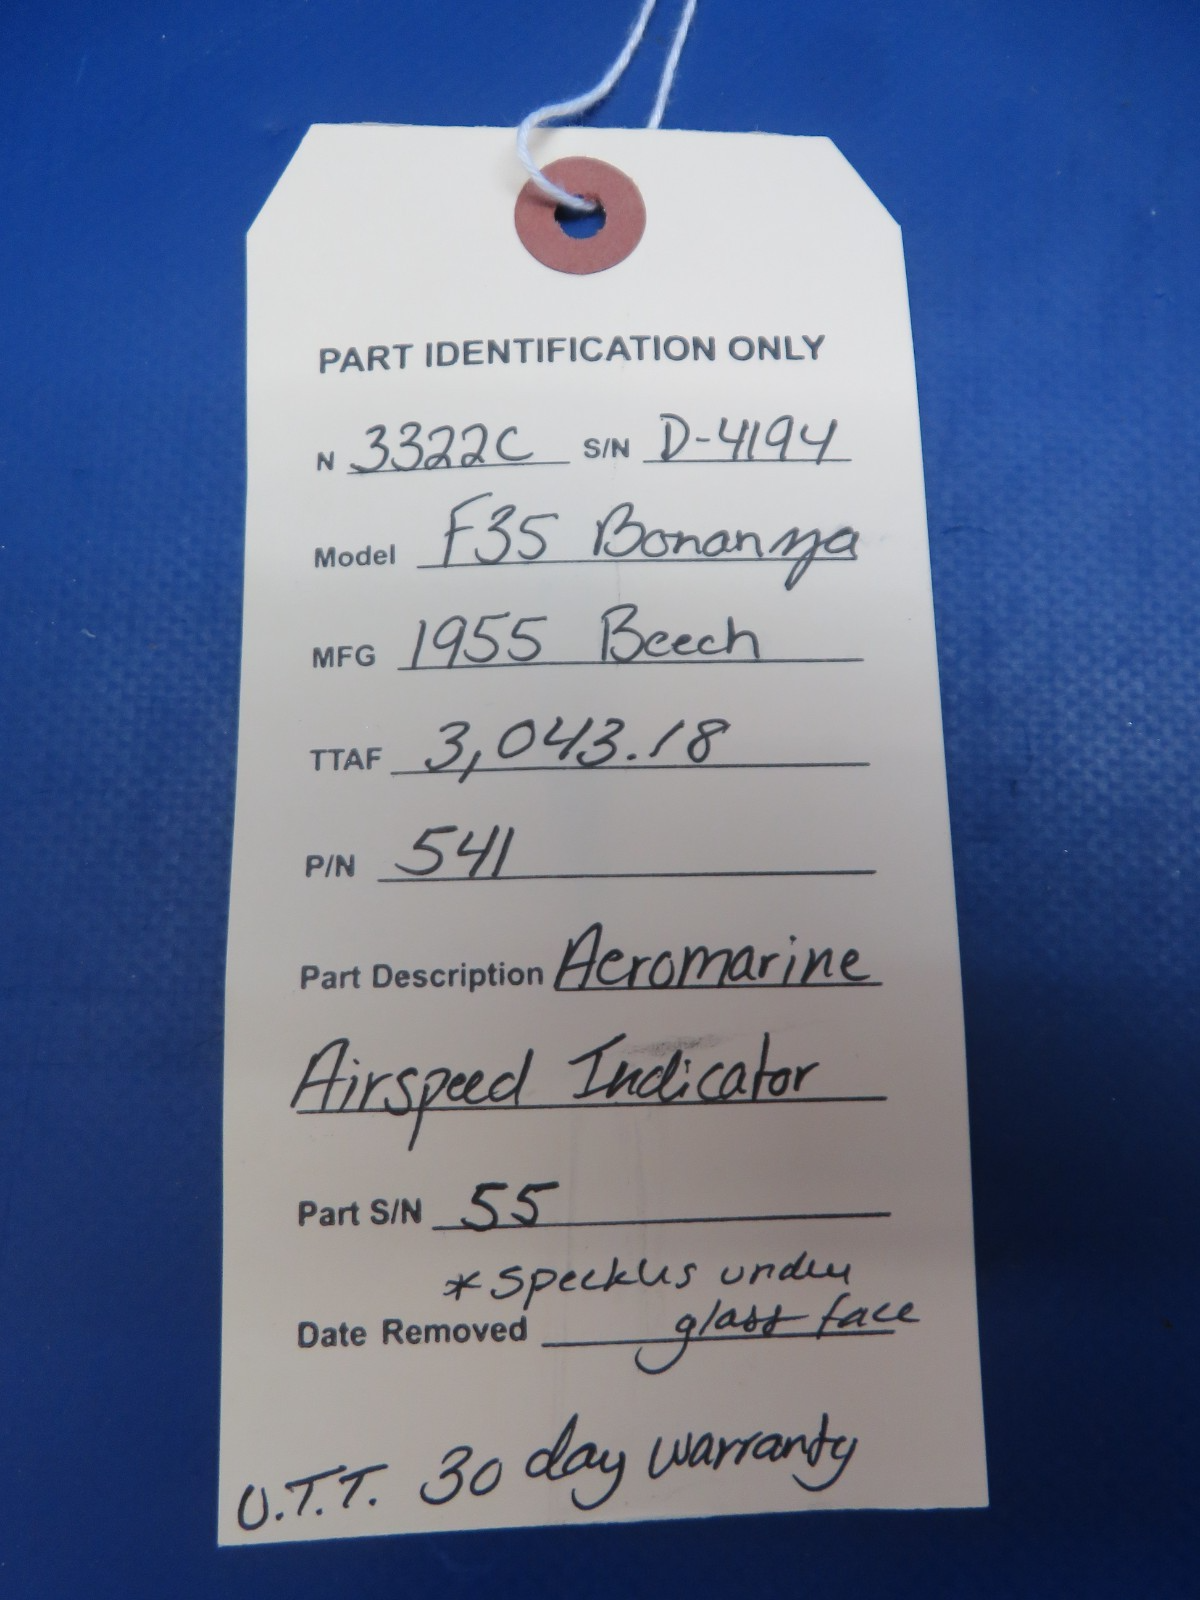 PART IDENTIFICATION ONLY
N 3322C S/N D-4194
Model F35 Bonanza
MFG 1955 Beech
TTAF 3,043.18
P/N 541
Part Description Aeromarine
Airspeed Indicator
Part S/N 55
*speckles under
Date Removed glass face
U.T.T. 30 day warranty